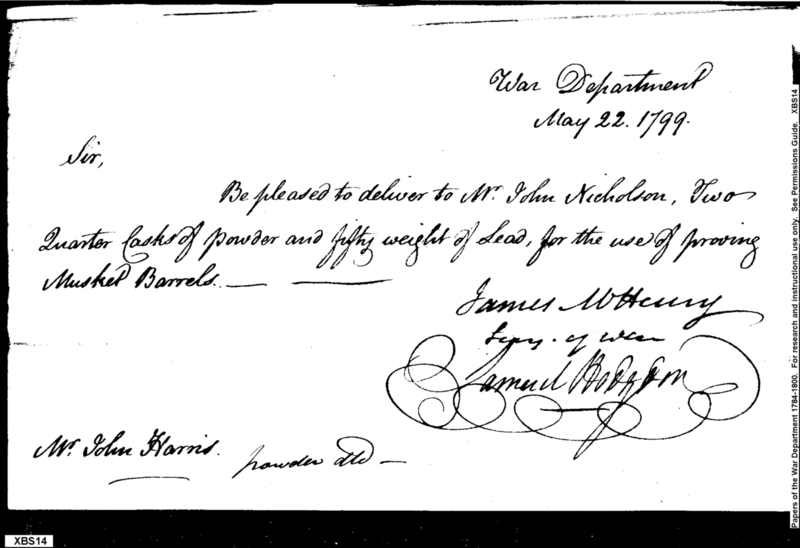 War Department
May 22. 1799.
Sir,
Be pleased to deliver to Mr. John Nicholson, Two
Quarter Casks of powder and fifty weight of Lead, for the use of proving
Musket Barrels.
James McHenry
Secy. of war
Samuel Hodgdon
Mr. John Harris.
powder dld
XBS14
Papers of the War Department 1784-1800. For research and instructional use only. See Permissions Guide. XBS14